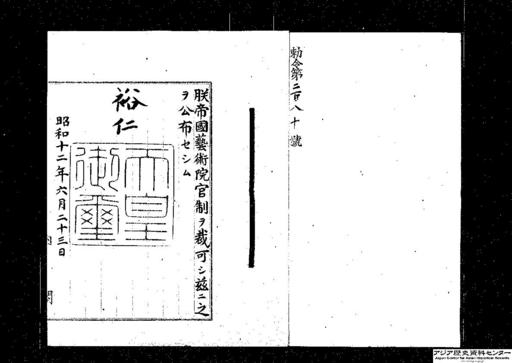 勅令第二百八十號
朕帝國藝術院官制ヲ裁可シ茲ニ之
ヲ公布セシム
裕仁
天皇御璽
昭和十二年六月二十三日
アジア歴史資料センター
Japan Center for Asian Historical Records